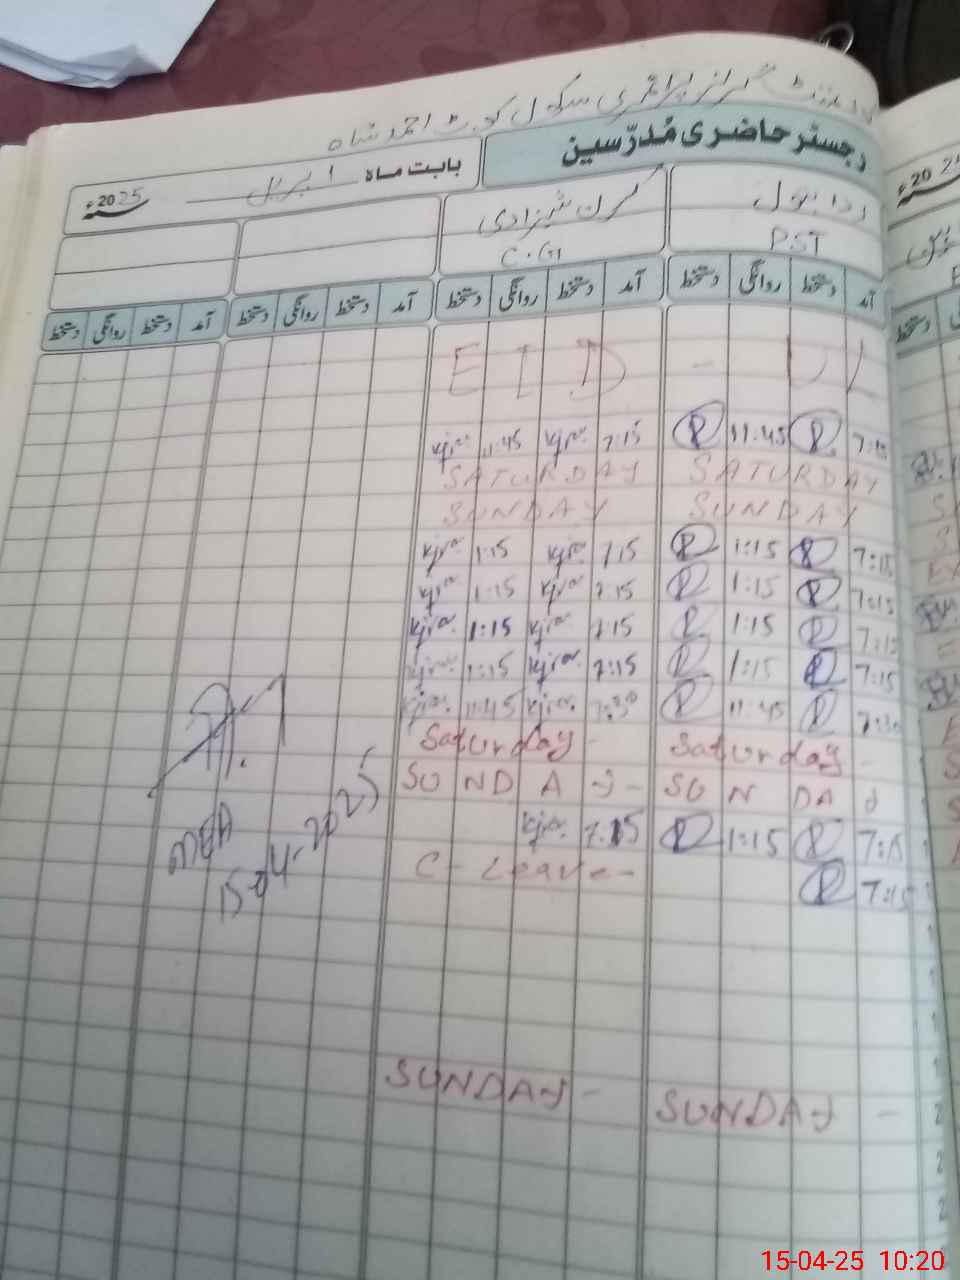 گورنمنٹ گرلز پرائمری سکول کوٹ احمد شاہ
رجسٹر حاضری مُدرّسین
بابت ماہ اپریل 2025ء
PST
کرن شہزادی
C.G
آمد دستخط روانگی دستخط آمد دستخط روانگی دستخط آمد دستخط روانگی دستخط آمد دستخط روانگی دستخط
E I D - U L
7:15 11:45 7:15 Kjra 11:45 Kjra
SATURDAY SATURDAY
SUNDAY SUNDAY
7:15 1:15 7:15 Kjra 1:15 Kjra
7:15 1:15 7:15 Kjra 1:15 Kjra
7:15 1:15 7:15 Kjra 1:15 Kjra
7:15 1:15 7:15 Kjra 1:15 Kjra
7:30 11:45 7:30 Kjra 11:45 Kjra
Saturday - Saturday -
SUNDAY - SUNDAY
7:15 1:15 7:15 Kjra
C - Leave - 7:15
MEA
15-04-2025
SUNDAY - SUNDAY -
15-04-25 10:20